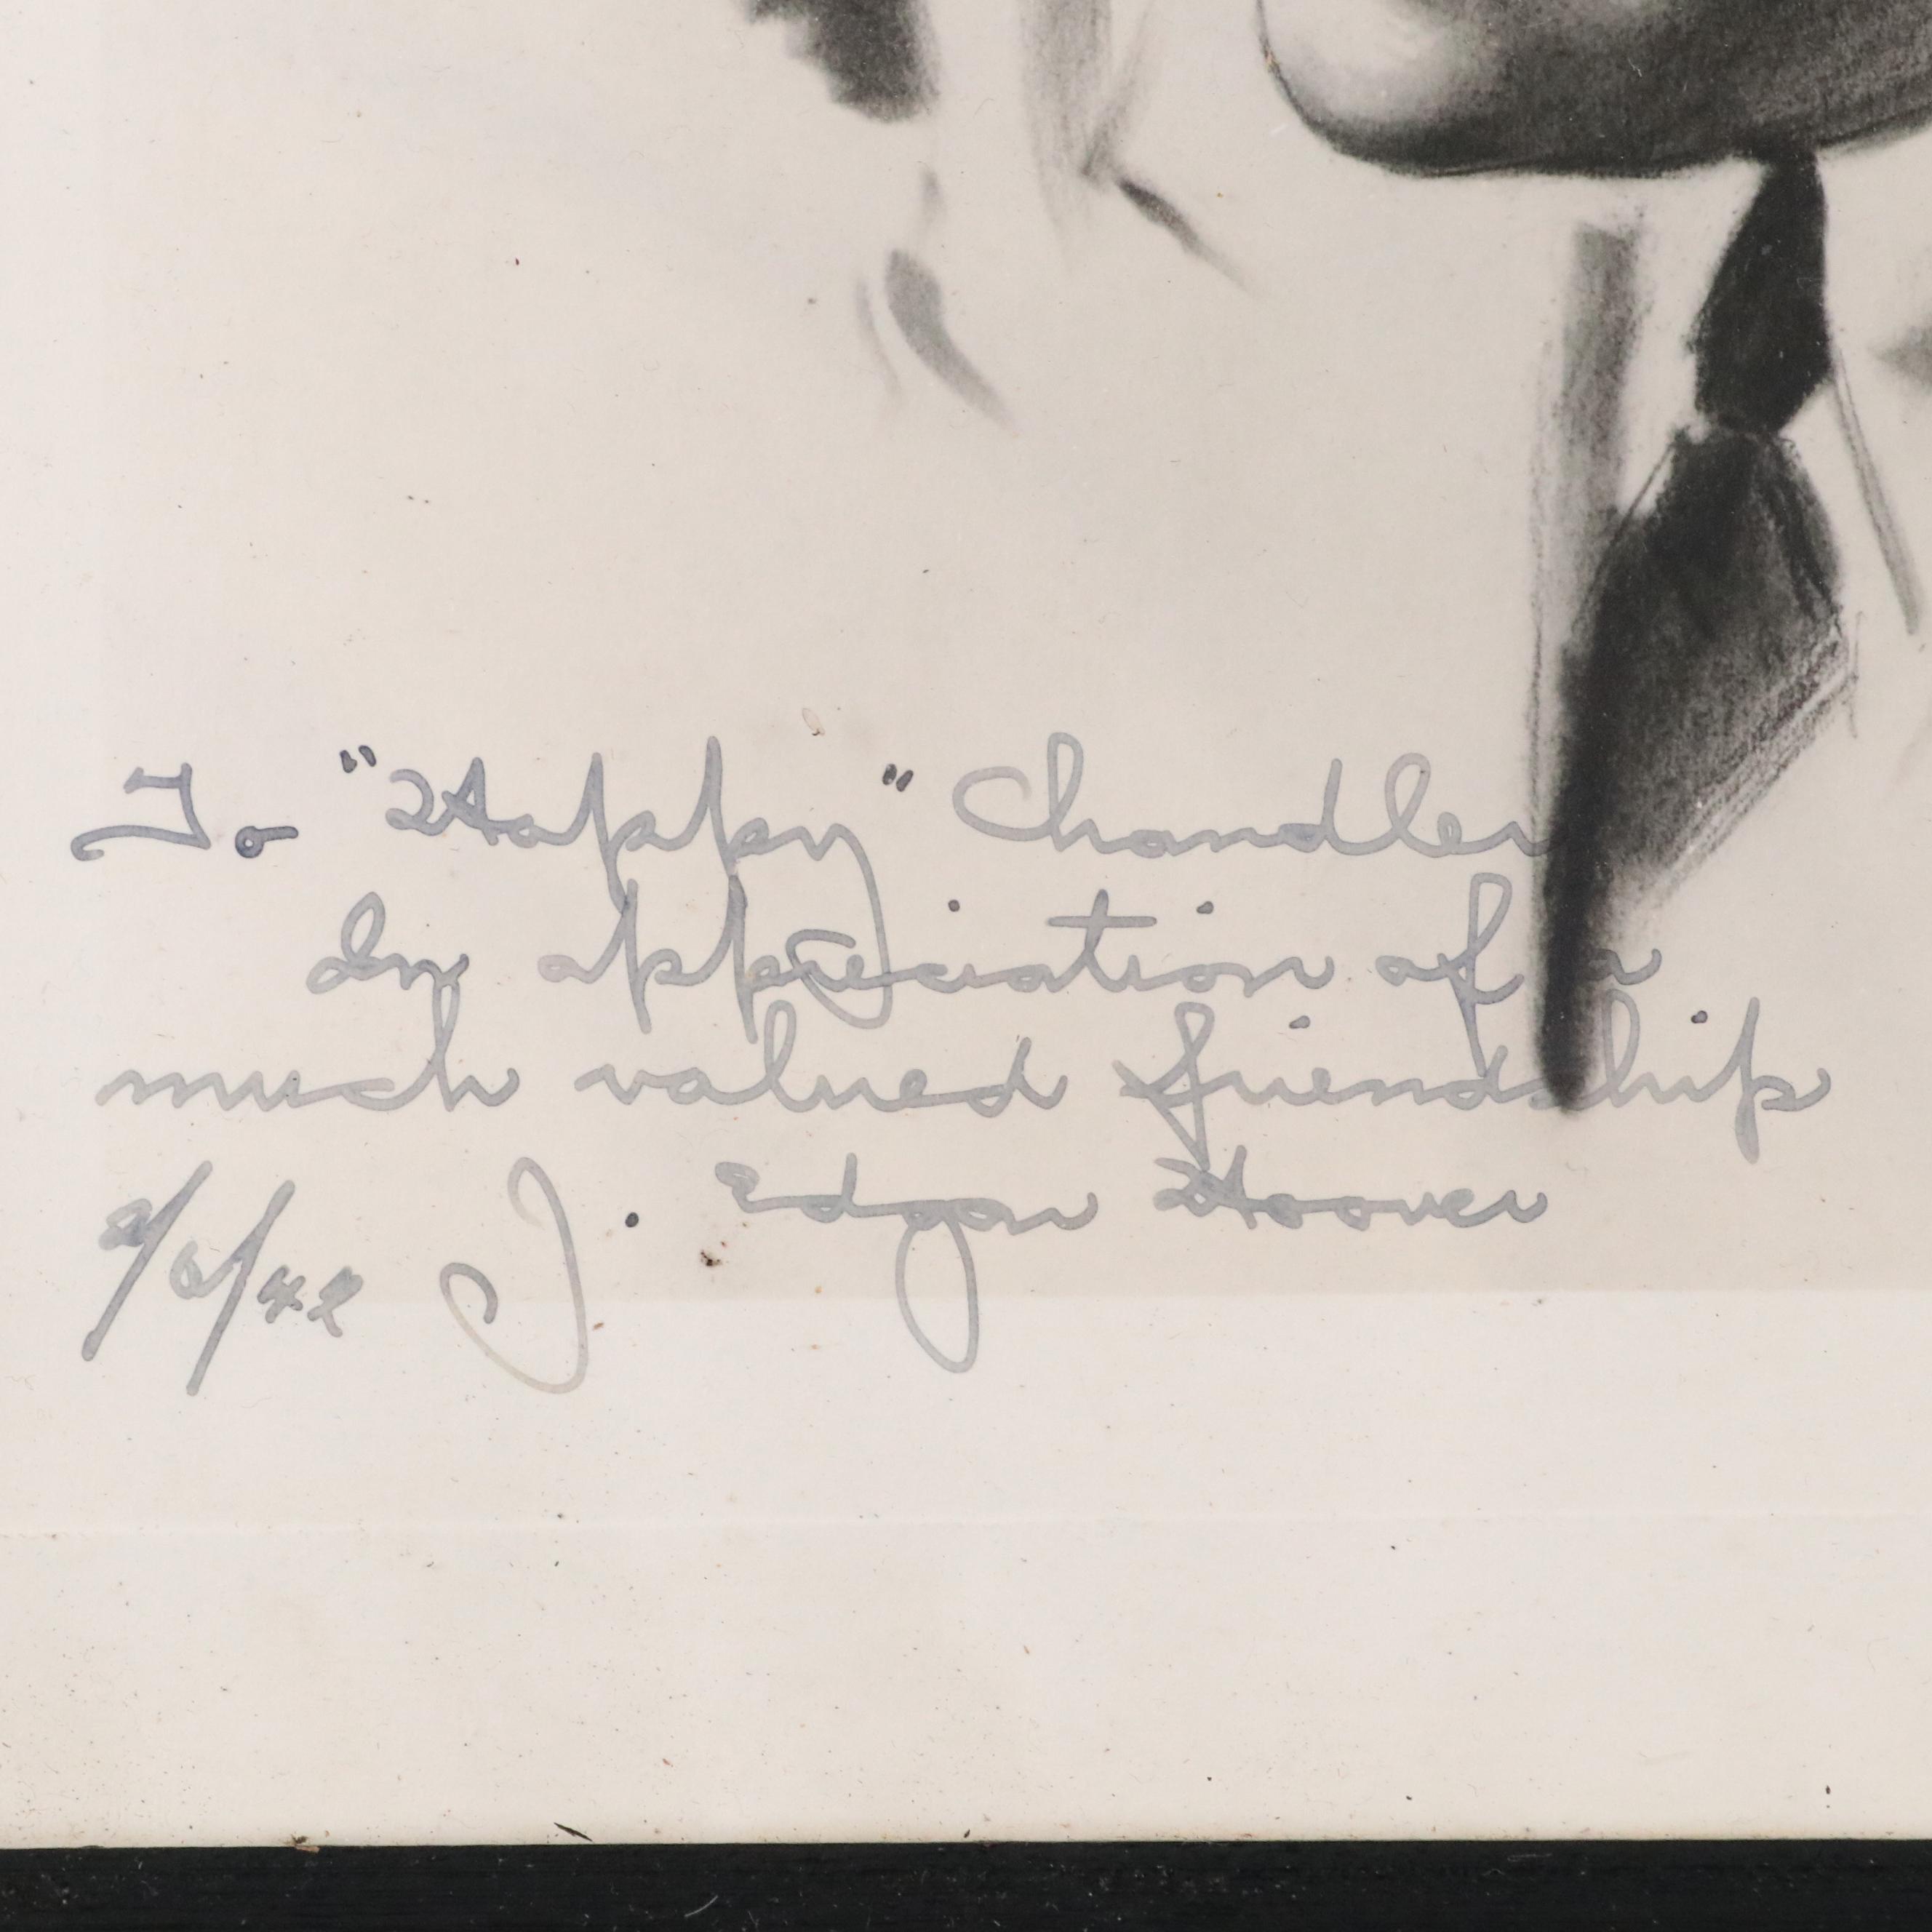 To "Happy" Chandler
In appreciation of a
much valued friendship
J. Edgar Hoover